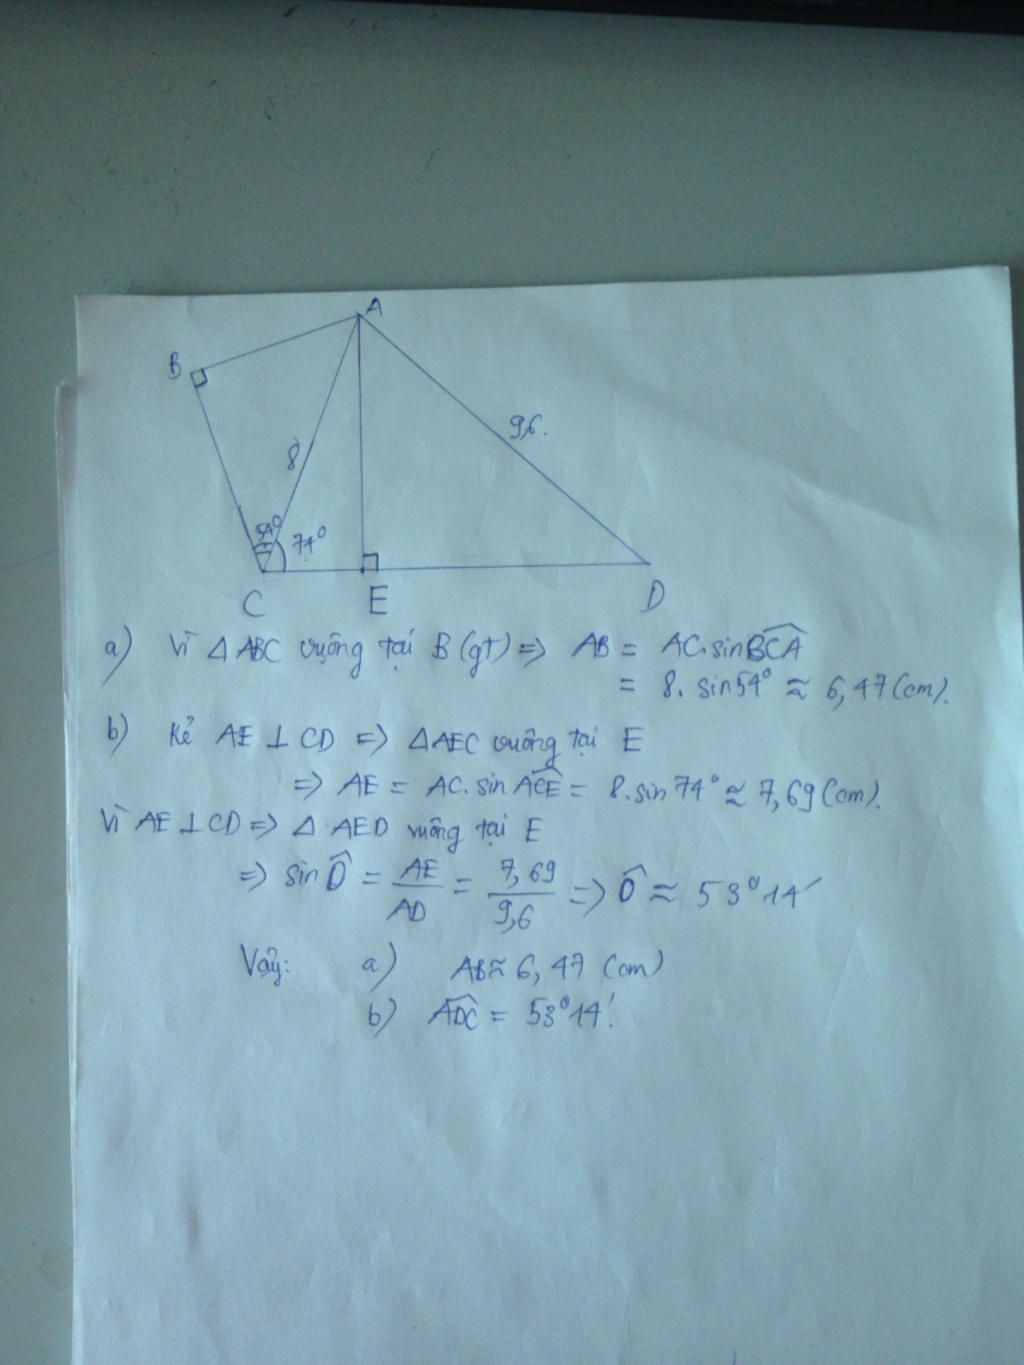 A
B
9,6.
8
54°
74°
C
E
D
a) Vì △ABC vuông tại B (gt) => AB = AC.sinBCA
= 8. sin54° ≈ 6,47 (cm).
b) Kẻ AE ⊥ CD => △AEC vuông tại E
=> AE = AC. sin ACE = 8.sin 74° ≈ 7,69 (cm).
Vì AE ⊥ CD => △ AED vuông tại E
=> sin D̂ = AE/AD = 7,69/9,6 => D̂ ≈ 53°14′
Vậy: a) AB ≈ 6,47 (cm)
b) ADC = 53°14′.